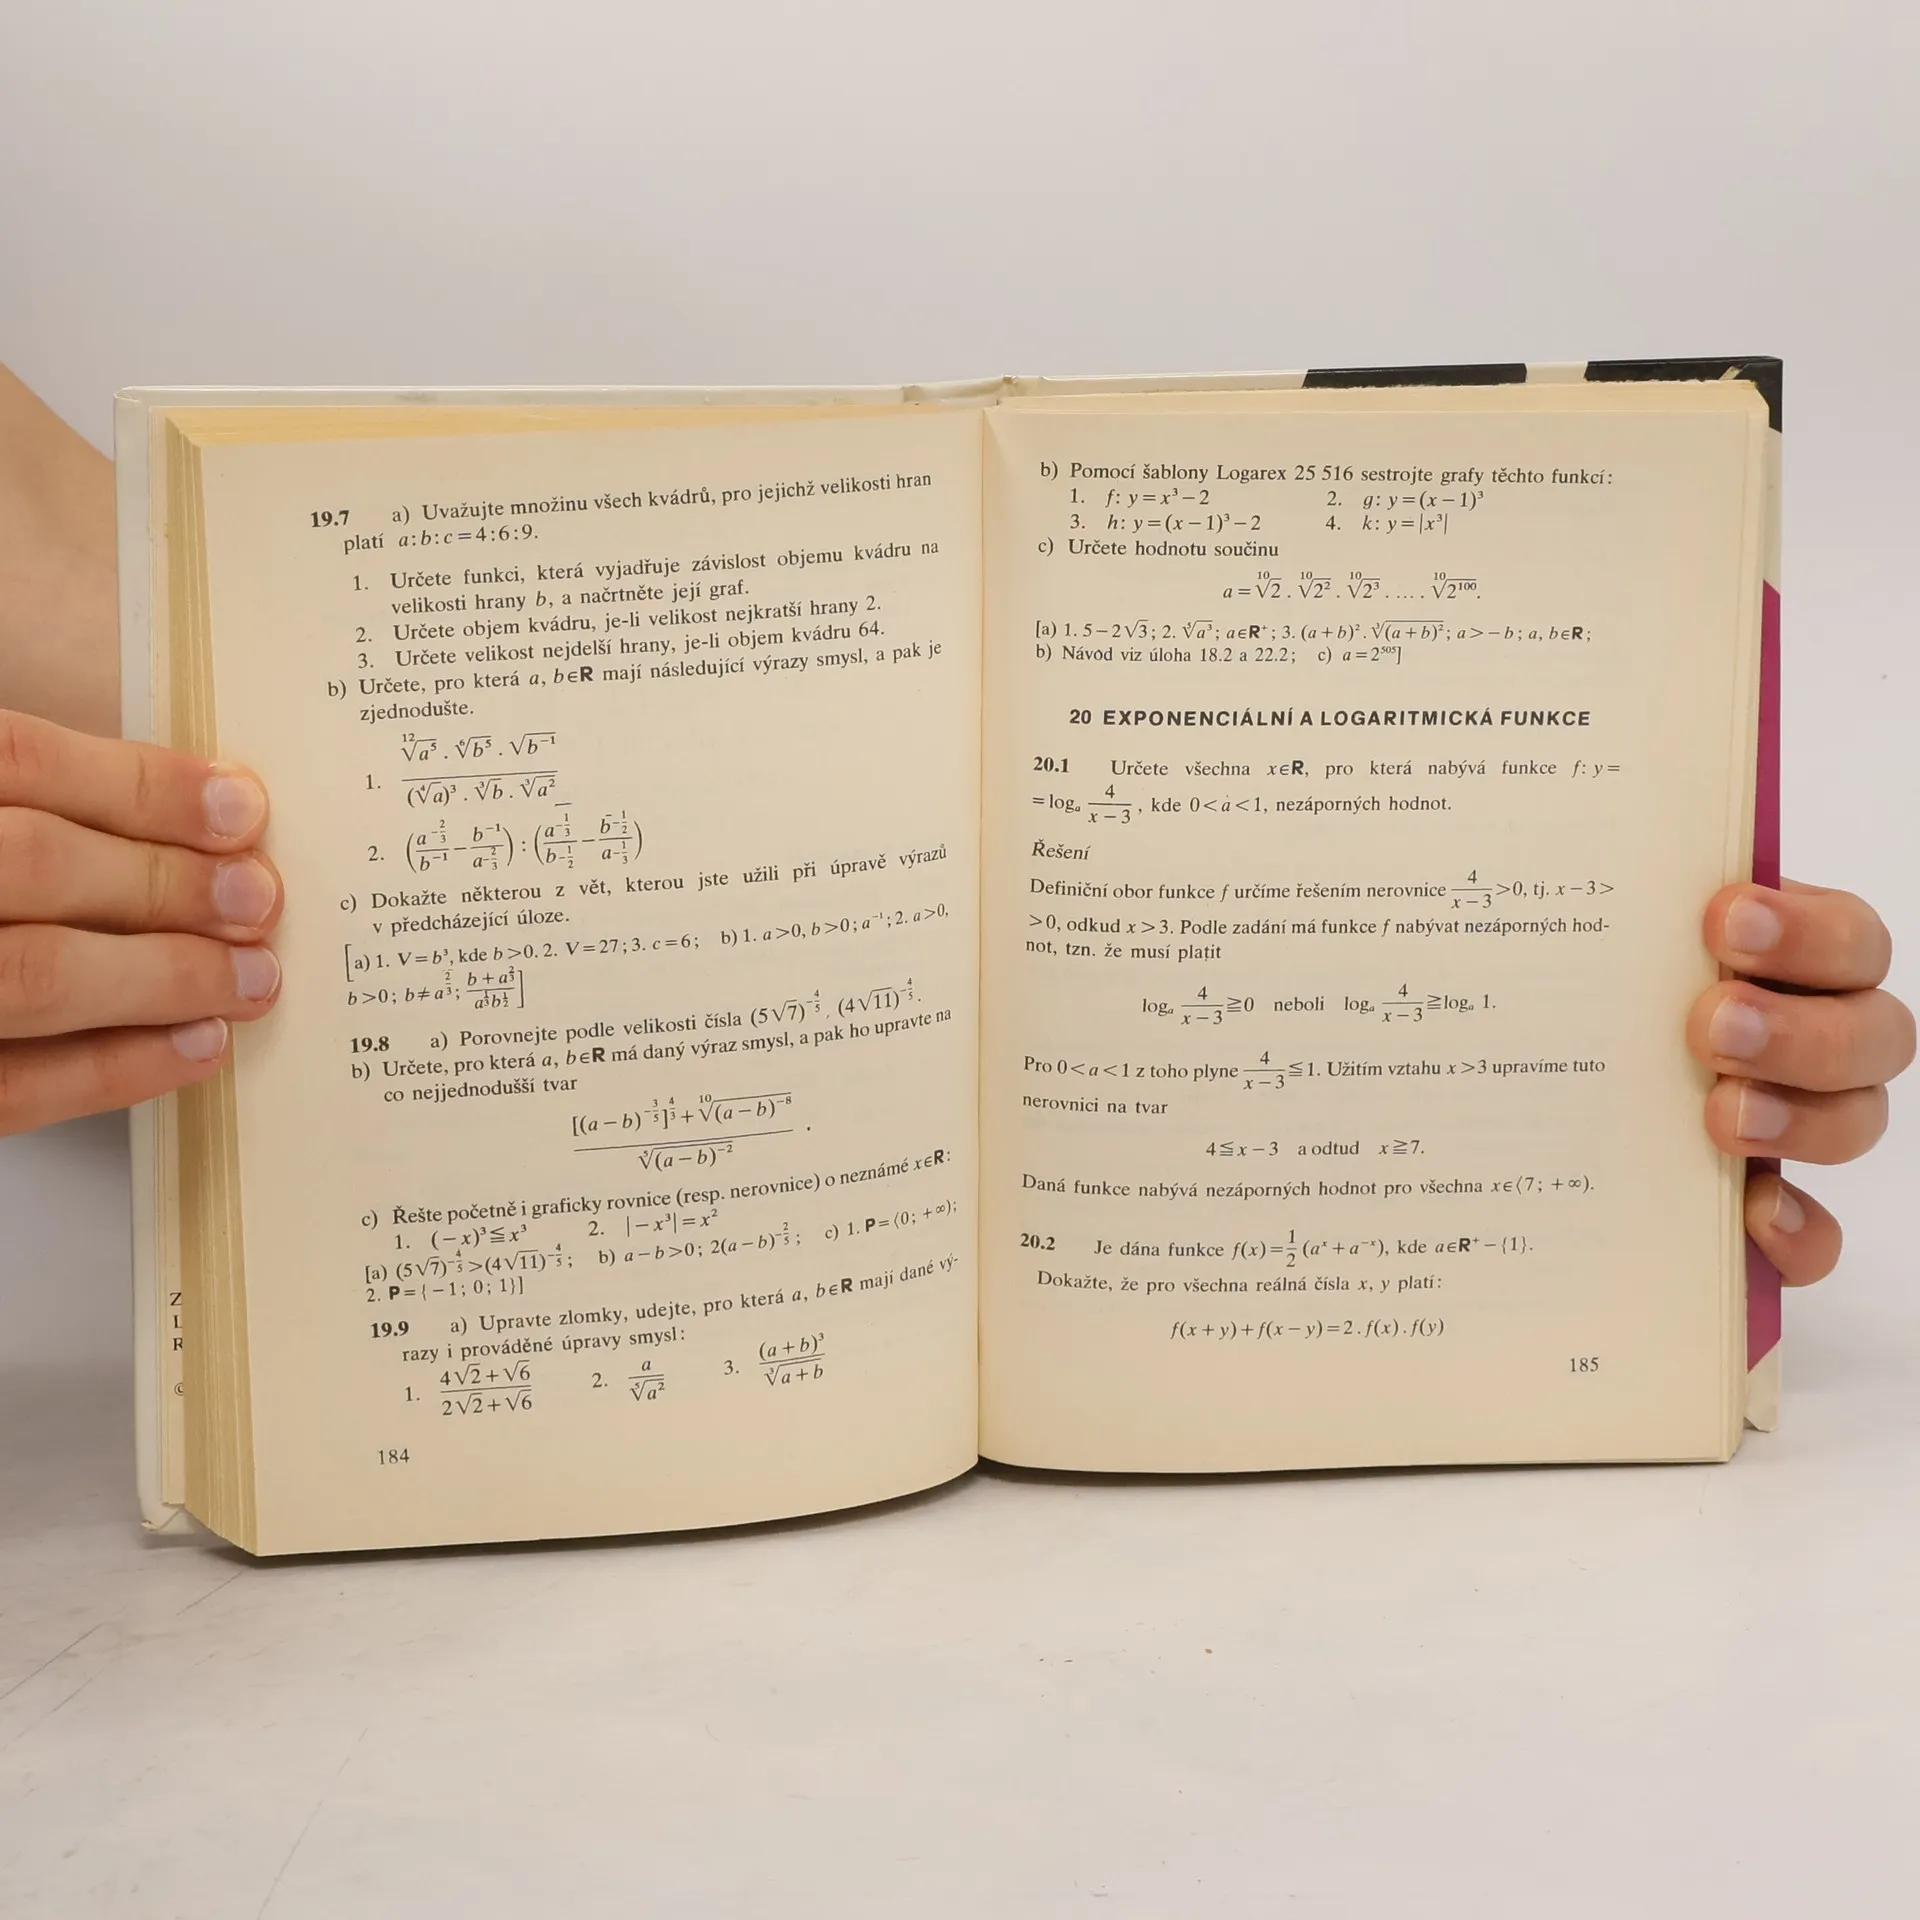 19.7 a) Uvažujte množinu všech kvádrů, pro jejichž velikosti hran
platí a:b:c=4:6:9.
1. Určete funkci, která vyjadřuje závislost objemu kvádru na
velikosti hrany b, a načrtněte její graf.
2. Určete objem kvádru, je-li velikost nejkratší hrany 2.
3. Určete velikost nejdelší hrany, je-li objem kvádru 64.
b) Určete, pro která a, b∈R mají následující výrazy smysl, a pak je
zjednodušte.
1. \frac{\sqrt[12]{a⁵} . \sqrt[6]{b⁵} . \sqrt{b⁻¹}}{(\sqrt[4]{a})³ . \sqrt[3]{b} . \sqrt[3]{a²}}
2. (\frac{a^{-\frac{2}{3}}}{b^{-1}} − \frac{b^{-1}}{a^{-\frac{2}{3}}}) : (\frac{a^{-\frac{1}{3}}}{b^{-\frac{1}{2}}} − \frac{b^{-\frac{1}{2}}}{a^{-\frac{1}{3}}})
c) Dokažte některou z vět, kterou jste užili při úpravě výrazů
v předcházející úloze.
[a) 1. V=b³, kde b>0. 2. V=27; 3. c=6; b) 1. a>0, b>0; a⁻¹; 2. a>0,
b>0; b≠a^{\frac{2}{3}}; \frac{b+a^{\frac{2}{3}}}{a^{\frac{1}{3}}b^{\frac{1}{2}}}]
19.8 a) Porovnejte podle velikosti čísla (5√7)^{-\frac{4}{5}}, (4√11)^{-\frac{4}{5}}.
b) Určete, pro která a, b∈R má daný výraz smysl, a pak ho upravte na
co nejjednodušší tvar
\frac{[(a−b)^{-\frac{3}{5}}]^{\frac{4}{3}}+\sqrt[10]{(a−b)⁻⁸}}{\sqrt[5]{(a−b)⁻²}}.
c) Řešte početně i graficky rovnice (resp. nerovnice) o neznámé x∈R:
1. (−x)³≦x³ 2. |−x³|=x²
[a) (5√7)^{-\frac{4}{5}}>(4√11)^{-\frac{4}{5}}; b) a−b>0; 2(a−b)^{-\frac{2}{5}}; c) 1. P=⟨0; +∞);
2. P={−1; 0; 1}]
19.9 a) Upravte zlomky, udejte, pro která a, b∈R mají dané vý-
razy i prováděné úpravy smysl:
1. \frac{4√2+√6}{2√2+√6} 2. \frac{a}{\sqrt[5]{a²}} 3. \frac{(a+b)³}{\sqrt[3]{a+b}}
184
b) Pomocí šablony Logarex 25 516 sestrojte grafy těchto funkcí:
1. f: y=x³−2 2. g: y=(x−1)³
3. h: y=(x−1)³−2 4. k: y=|x³|
c) Určete hodnotu součinu
a=\sqrt[10]{2} . \sqrt[10]{2²} . \sqrt[10]{2³} . .... . \sqrt[10]{2¹⁰⁰}.
[a) 1. 5−2√3; 2. \sqrt[5]{a³}; a∈R⁺; 3. (a+b)² . \sqrt[3]{(a+b)²}; a>−b; a, b∈R;
b) Návod viz úloha 18.2 a 22.2; c) a=2⁵⁰⁵]
20 EXPONENCIÁLNÍ A LOGARITMICKÁ FUNKCE
20.1 Určete všechna x∈R, pro která nabývá funkce f: y=
=logₐ \frac{4}{x−3}, kde 0<a<1, nezáporných hodnot.
Řešení
Definiční obor funkce f určíme řešením nerovnice \frac{4}{x−3}>0, tj. x−3>
>0, odkud x>3. Podle zadání má funkce f nabývat nezáporných hod-
not, tzn. že musí platit
logₐ \frac{4}{x−3}≧0 neboli logₐ \frac{4}{x−3}≧logₐ 1.
Pro 0<a<1 z toho plyne \frac{4}{x−3}≦1. Užitím vztahu x>3 upravíme tuto
nerovnici na tvar
4≦x−3 a odtud x≧7.
Daná funkce nabývá nezáporných hodnot pro všechna x∈⟨7; +∞).
20.2 Je dána funkce f(x)=\frac{1}{2}(aˣ+a⁻ˣ), kde a∈R⁺−{1}.
Dokažte, že pro všechna reálná čísla x, y platí:
f(x+y)+f(x−y)=2.f(x).f(y)
185
Z
L
R
©